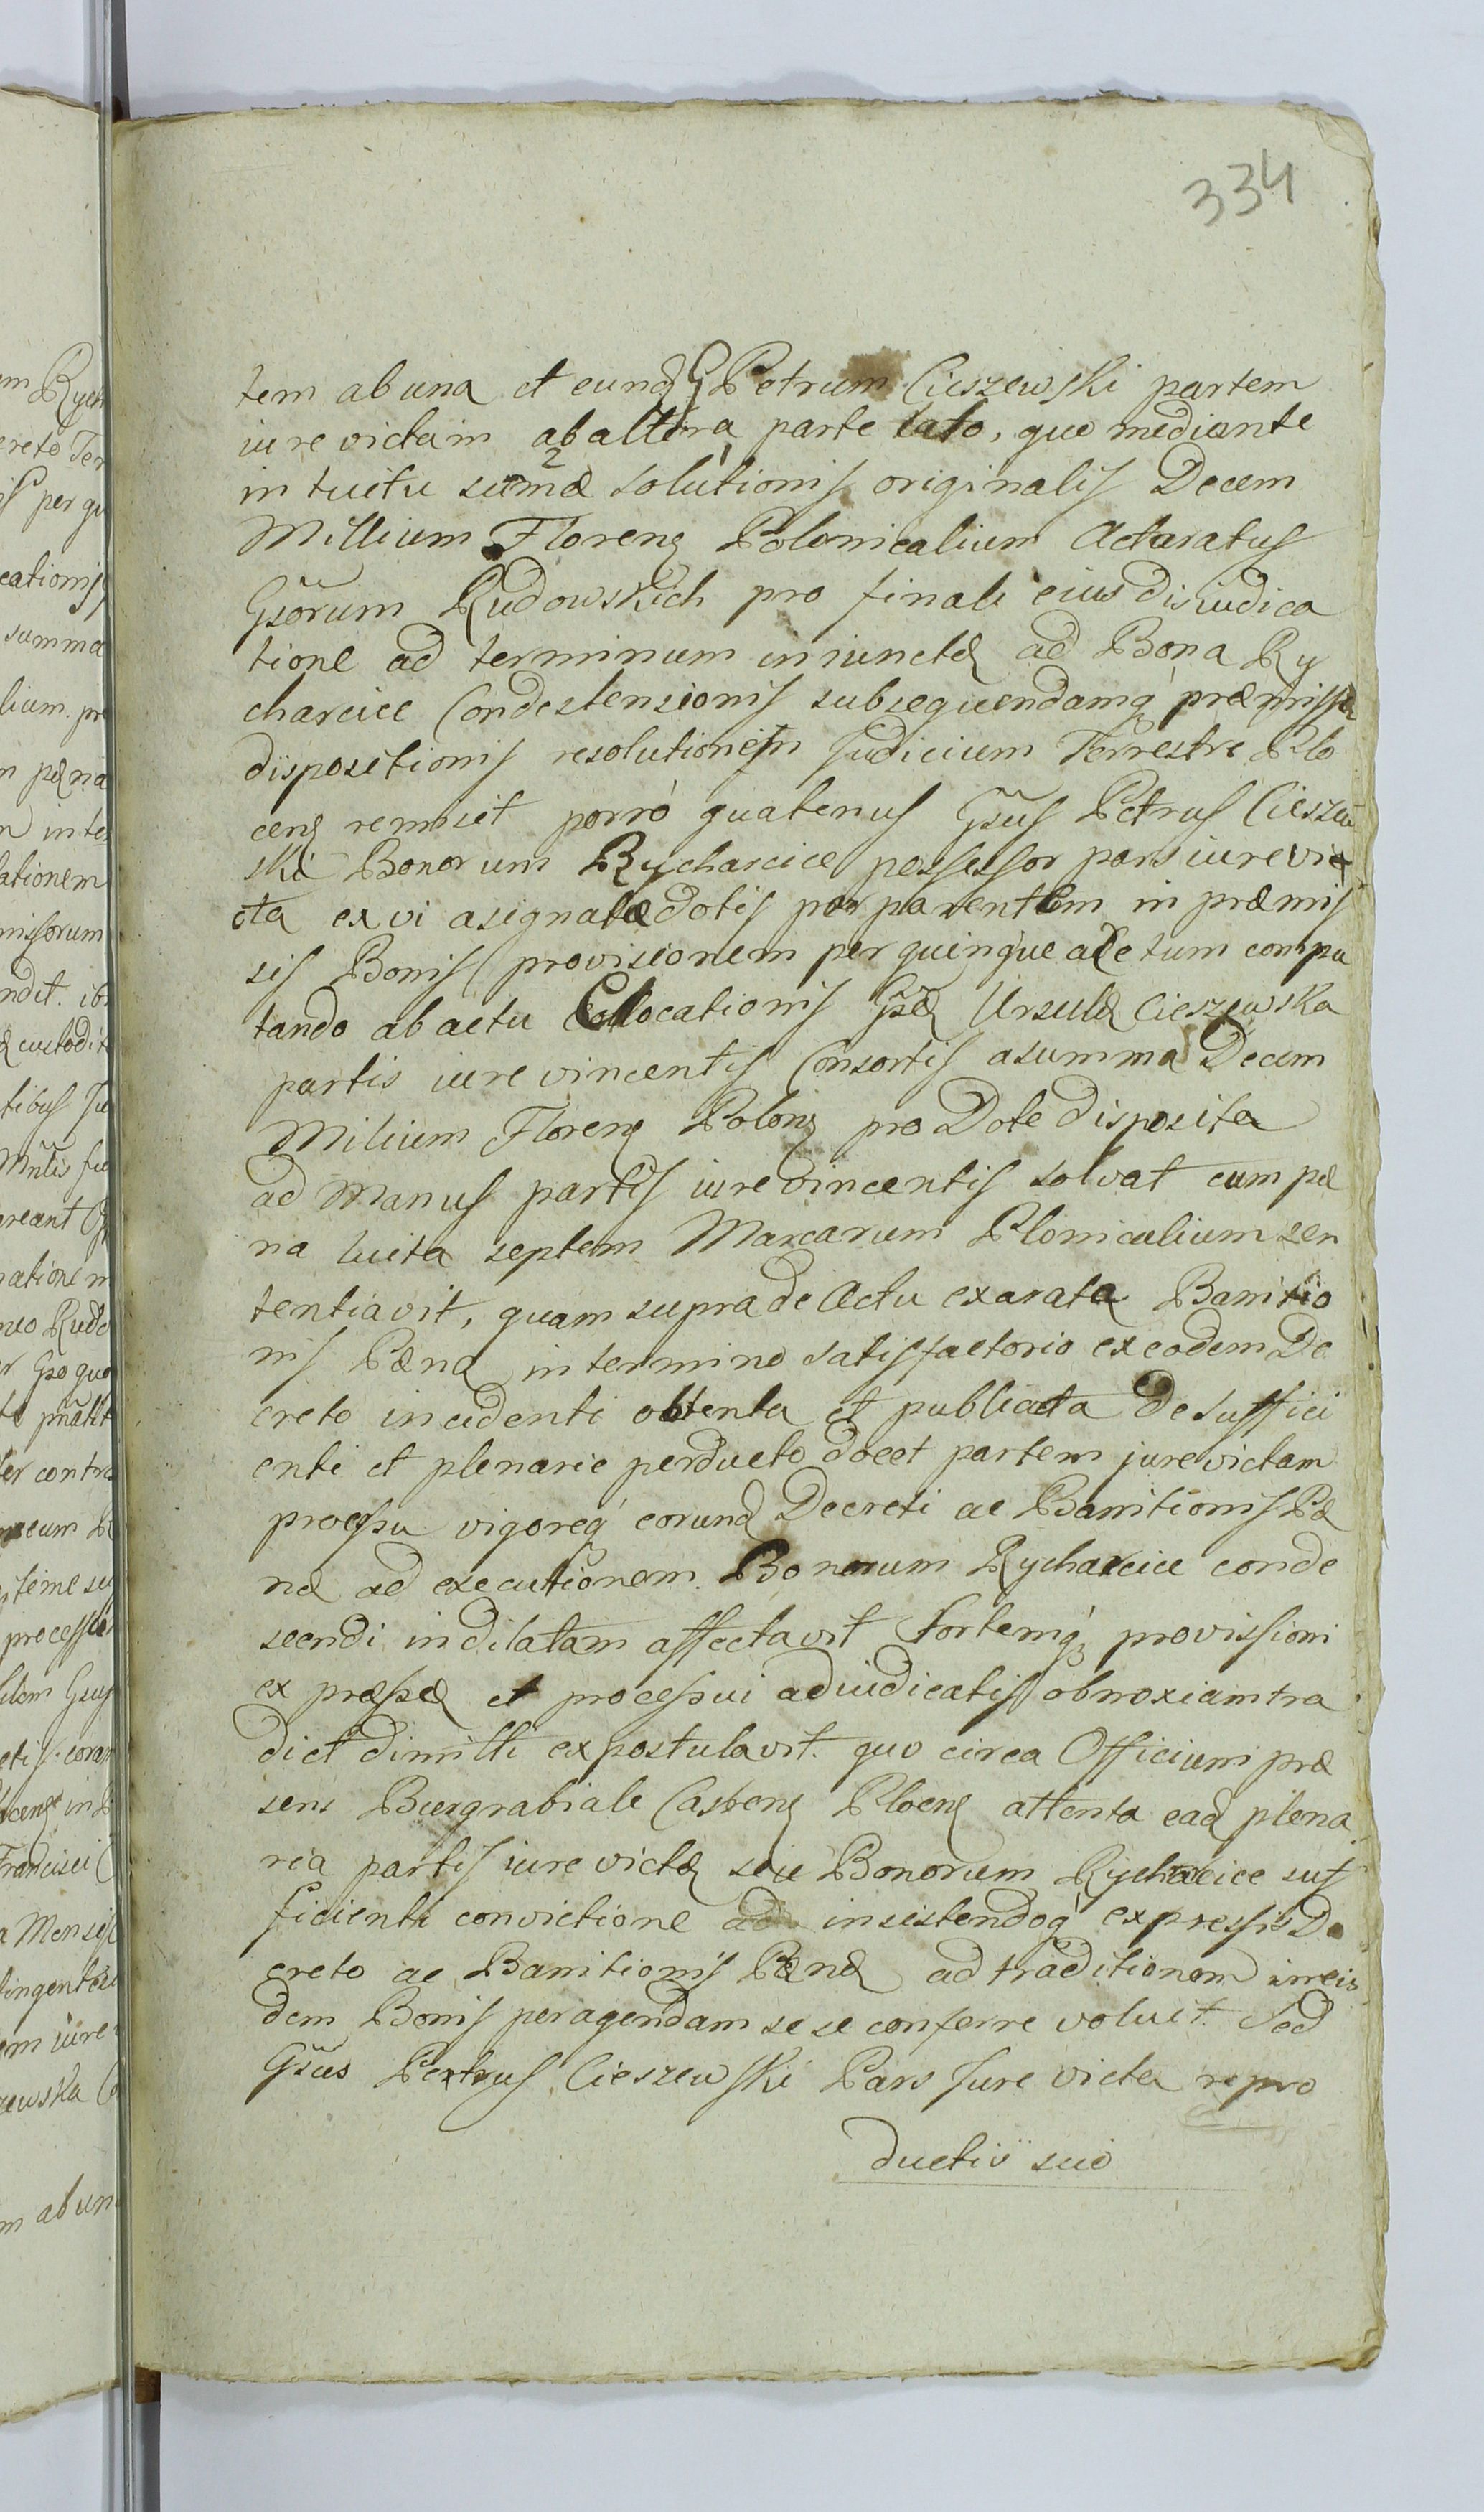 334
tem ab una et eund G Petrum Cieszewski partem
iure victam ab altera parte lato, quo mediante
intuitu summæ solutionis originalis Decem
Millium Floreng Polonicalium Actoratus
Gsorum Rudowskich pro finali eius disiudica
tione ad terminum iniunctæ ad Bona Ry
charcice Condestensionis subsequendamq præmissæ
dispositionis resolutionem Judicium Terrestre Plo
ceng remisit porro quatenus Gsus Petrus Cieszew
ski Bonorum Rycharcice possessor pars iure vi
cta ex vi asignatæ dotis per parentem in præmis
sis Bonis provisionem per quinque a tum compu
tando ab actu Collocationis Gsæ Ursulæ Cieszewska
partis iure vincentis Consortis a summa Decem
Milium Floreng Polong pro Dote disposita
ad Manus partis iure vincentis solvat cum pæ
na luita septem Marcarum Plonicalium sen
tentiavit, quam supra de Actu exarata Banitio
nis Pæna in termino satisfactorio ex eodem De
creto incidenti obtenta et publicata De suffici
enti et plenarie perducto docet partem jure victam
processu vigoreq eorund Decreti ac Banitionis Pæ
næ ad executionem Bonorum Rycharcice conde
scendi indilatam affectavit Sortemq provissioni
ex præssæ et processui adiudicatis obnoxiam tra
di et dimitti expostulavit. quo circa Officium præ
sens Burgrabiale Castreng Ploceng attenta ead plena
ria partis iure victæ seu Bonorum Rycharcice suf
ficienti convictione insistendoq expressis De
creto ac Banitionis Pænæ ad traditionem in eis
dem Bonis peragendam se se conferre voluit. Sed
Gsus Petrus Cieszewski Pars Jure victa repro
ductis suis